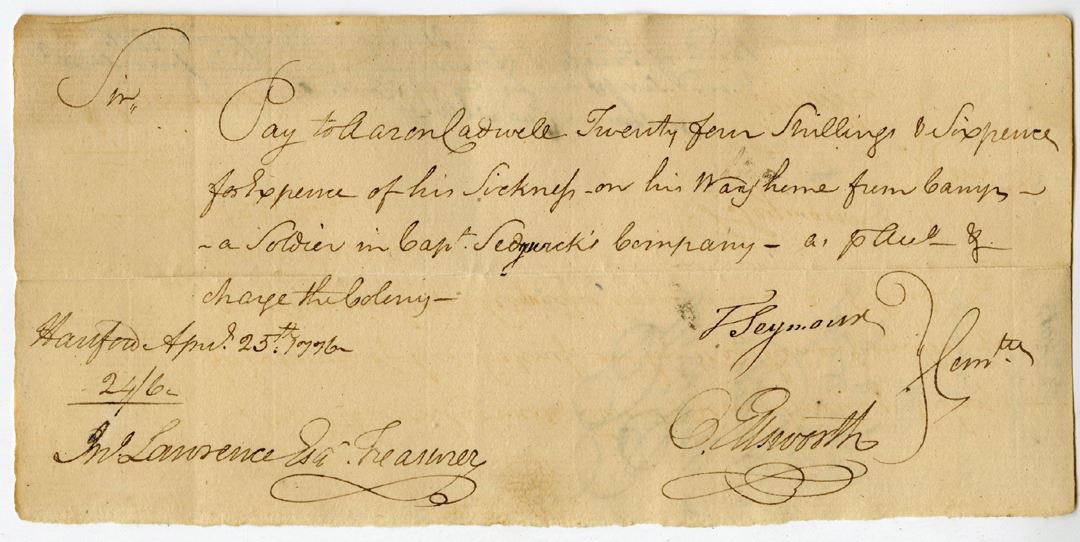 Sir,,
Pay to Aaron Cadwele Twenty four Shillings & Sixpence
for Expence of his Sickness on his Way home from Camp –
– a Soldier in Capt. Sedgwick's Company – as p &
charge the Colony –
Hartford Apr. 25th. 1776
T Seymour
24/6
Comtte
O. Ellsworth
Jno. Lawrence Esqr. Treasurer